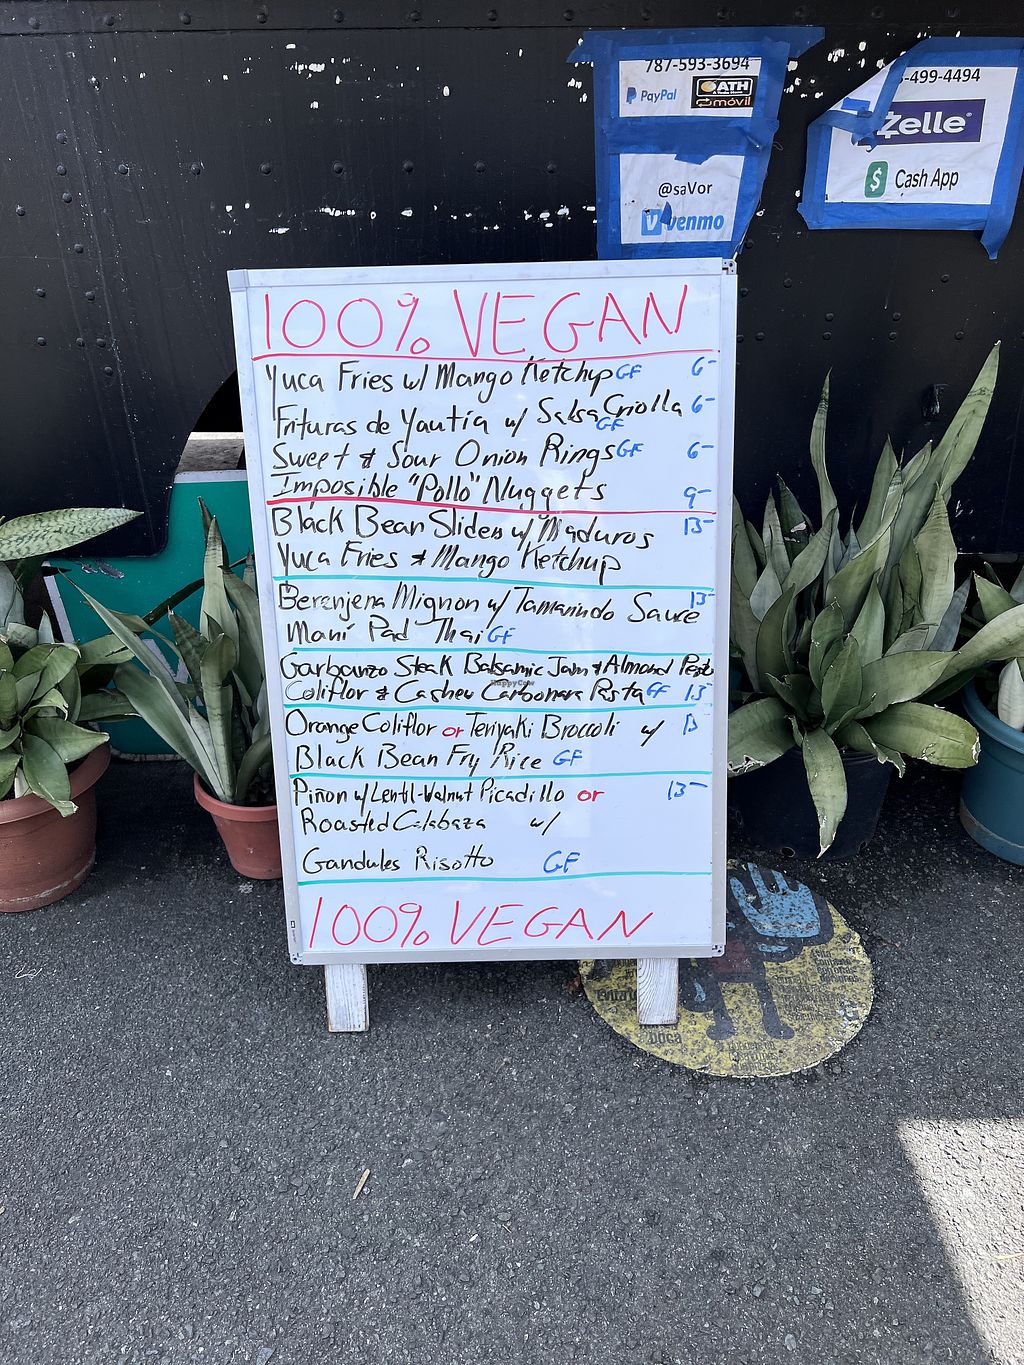 787-593-3694
PayPal
ATH
móvil
@saVor
venmo
-499-4494
Zelle
Cash App
100% VEGAN
Yuca Fries w/ Mango Ketchup GF 6-
Frituras de Yautía w/ Salsa Criolla 6-
GF
Sweet & Sour Onion Rings GF 6-
Imposible "Pollo" Nuggets 9-
Black Bean Sliders w/ Maduros 13-
Yuca Fries & Mango Ketchup
Berenjena Mignon w/ Tamarindo Sauce 13-
Maní Pad Thai GF
Garbanzo Steak Balsamic Jam & Almond Pesto
Coliflor & Cashew Carbonara Pasta GF 13-
HappyCow
Orange Coliflor or Teriyaki Broccoli w/ 13
Black Bean Fry Rice GF
Piñon w/ Lentil-Walnut Picadillo or 13-
Roasted Calabaza w/
Gandules Risotto GF
100% VEGAN